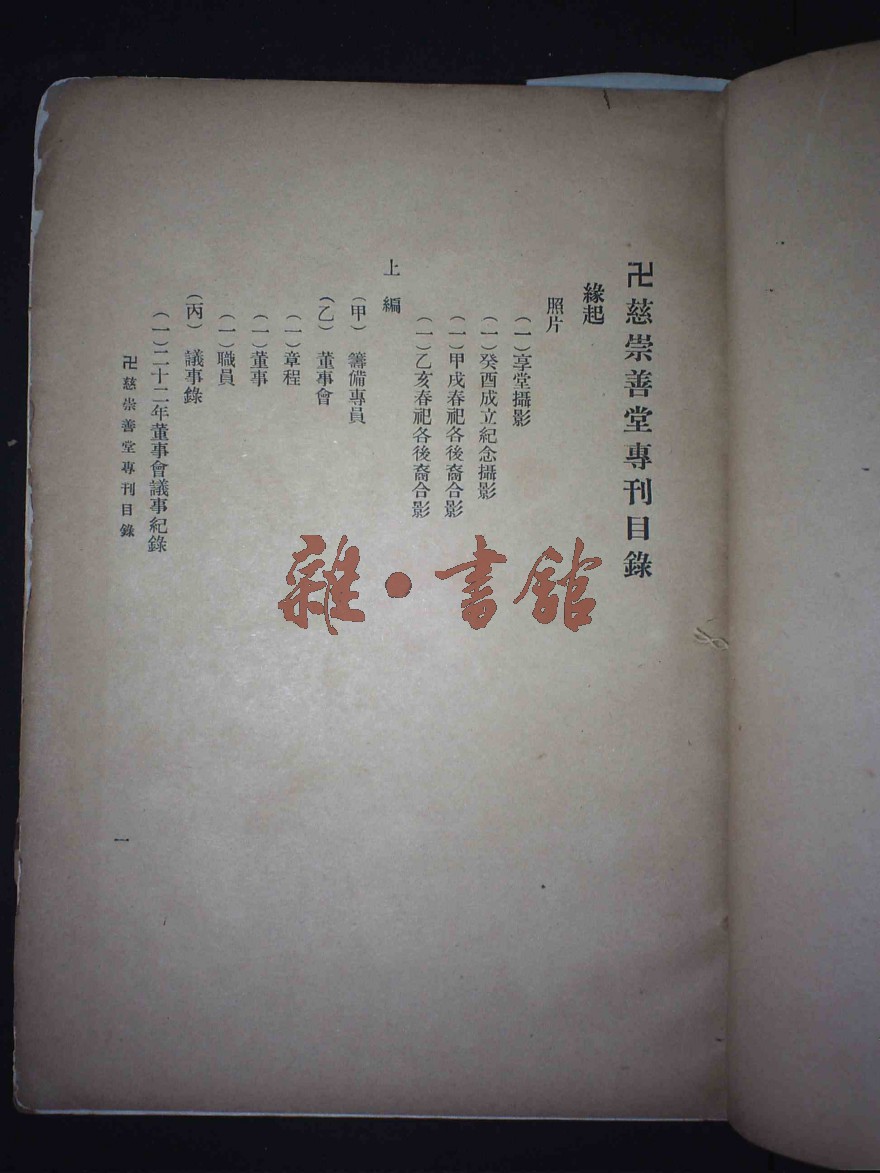 卍慈崇善堂專刊目錄
緣起
照片
（一）享堂攝影
（一）癸酉成立紀念攝影
（一）甲戌春祀各後裔合影
（一）乙亥春祀各後裔合影
上編
（甲）籌備專員
（乙）董事會
（一）章程
（一）董事
（一）職員
（丙）議事錄
（一）二十二年董事會議事紀錄
卍慈崇善堂專刊目錄
一
雜·書館